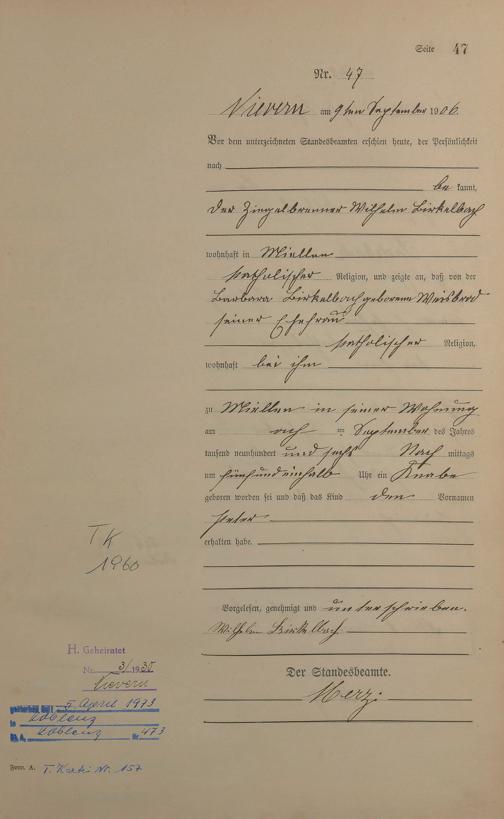 Seite 47
Nr. 47
Nievern am 9ten September 1906.
Vor dem unterzeichneten Standesbeamten erschien heute, der Persönlichkeit
nach
be kannt,
der Ziegelbrenner Wilhelm Birkelbach
wohnhaft in Miellen
katholischer Religion, und zeigte an, daß von der
Barbara Birkelbach geborene Weisbrod
seiner Ehefrau
katholischer Religion,
wohnhaft bei ihm
zu Miellen in seiner Wohnung
am acht ten September des Jahres
tausend neunhundert und sechs Nach mittags
um fünfundeinhalb Uhr ein Knabe
geboren worden sei und daß das Kind den Vornamen
Peter
erhalten habe.
TK
1960
Vorgelesen, genehmigt und unterschrieben.
Wilhelm Birkelbach
H. Geheiratet
Nr. 3/1935
Nievern
Der Standesbeamte.
Merz.
5. April 1973
in Koblenz
St. A. Koblenz Nr. 473
Form. A. T. Kart. Nr. 157